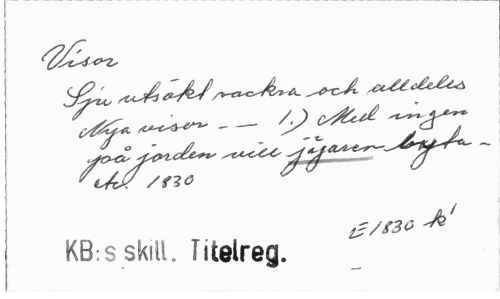 Visor
Sju utsökt vackra och alldeles
Nya visor - — 1.) Med ingen
på jorden vill jägaren byta -
etc. 1830
E 1830 k'
KB:s skill. Titelreg.